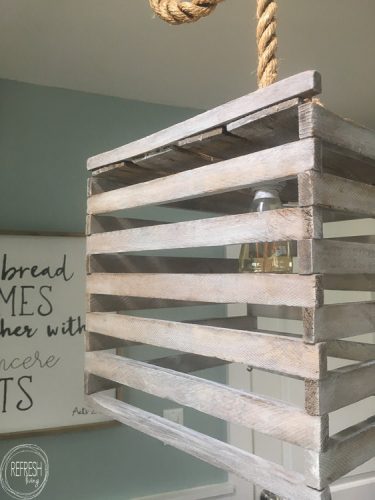 bread
MES
her with
incere
TS
Acts 2
REFRESH
living